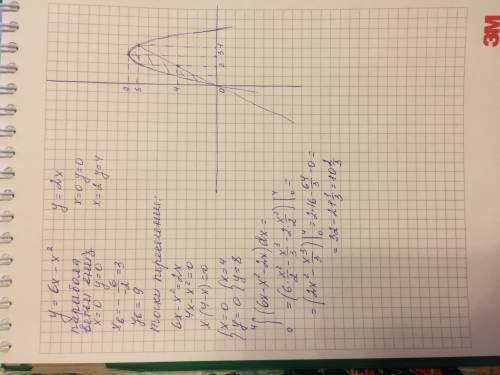 y = 6x - x²
парабола
ветви вниз
x=0 y=0
x_в = -6/-2 = 3
y_в = 9
y = 2x
x=0 y=0
x=2 y=4
точки пересечения:
6x - x² = 2x
4x - x² = 0
x(4-x) = 0
{x=0 {x=4
{y=0 {y=8
∫₀⁴ (6x - x² - 2x) dx =
= (6·x²/2 - x³/3 - 2·x²/2)|₀⁴ =
= (2x² - x³/3)|₀⁴ = 2·16 - 64/3 - 0 =
= 32 - 21 1/3 = 10 2/3
9
8
4
0
2
3
4
3M